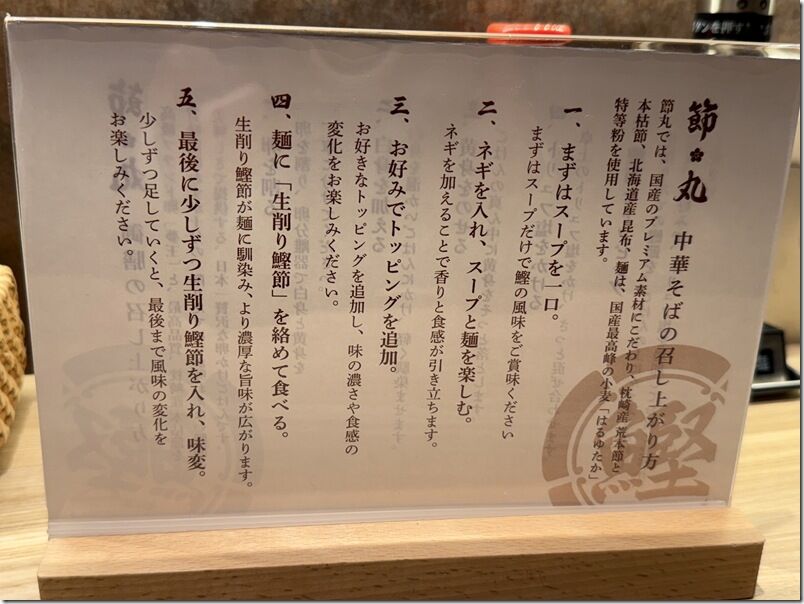 節丸 中華そばの召し上がり方
節丸では、国産のプレミアム素材にこだわり、枕崎産 荒本節と
本枯節、北海道産 昆布、麺は、国産最高峰の小麦「はるゆたか」
特等粉を使用しています。
一、まずはスープを一口。
まずはスープだけで鰹の風味をご賞味ください
二、ネギを入れ、スープと麺を楽しむ。
ネギを加えることで香りと食感が引き立ちます。
三、お好みでトッピングを追加。
お好きなトッピングを追加し、味の濃さや食感の
変化をお楽しみください。
四、麺に「生削り鰹節」を絡めて食べる。
生削り鰹節が麺に馴染み、より濃厚な旨味が広がります。
五、最後に少しずつ生削り鰹節を入れ、味変。
少しずつ足していくと、最後まで風味の変化を
お楽しみください。
鰹
タンを押す